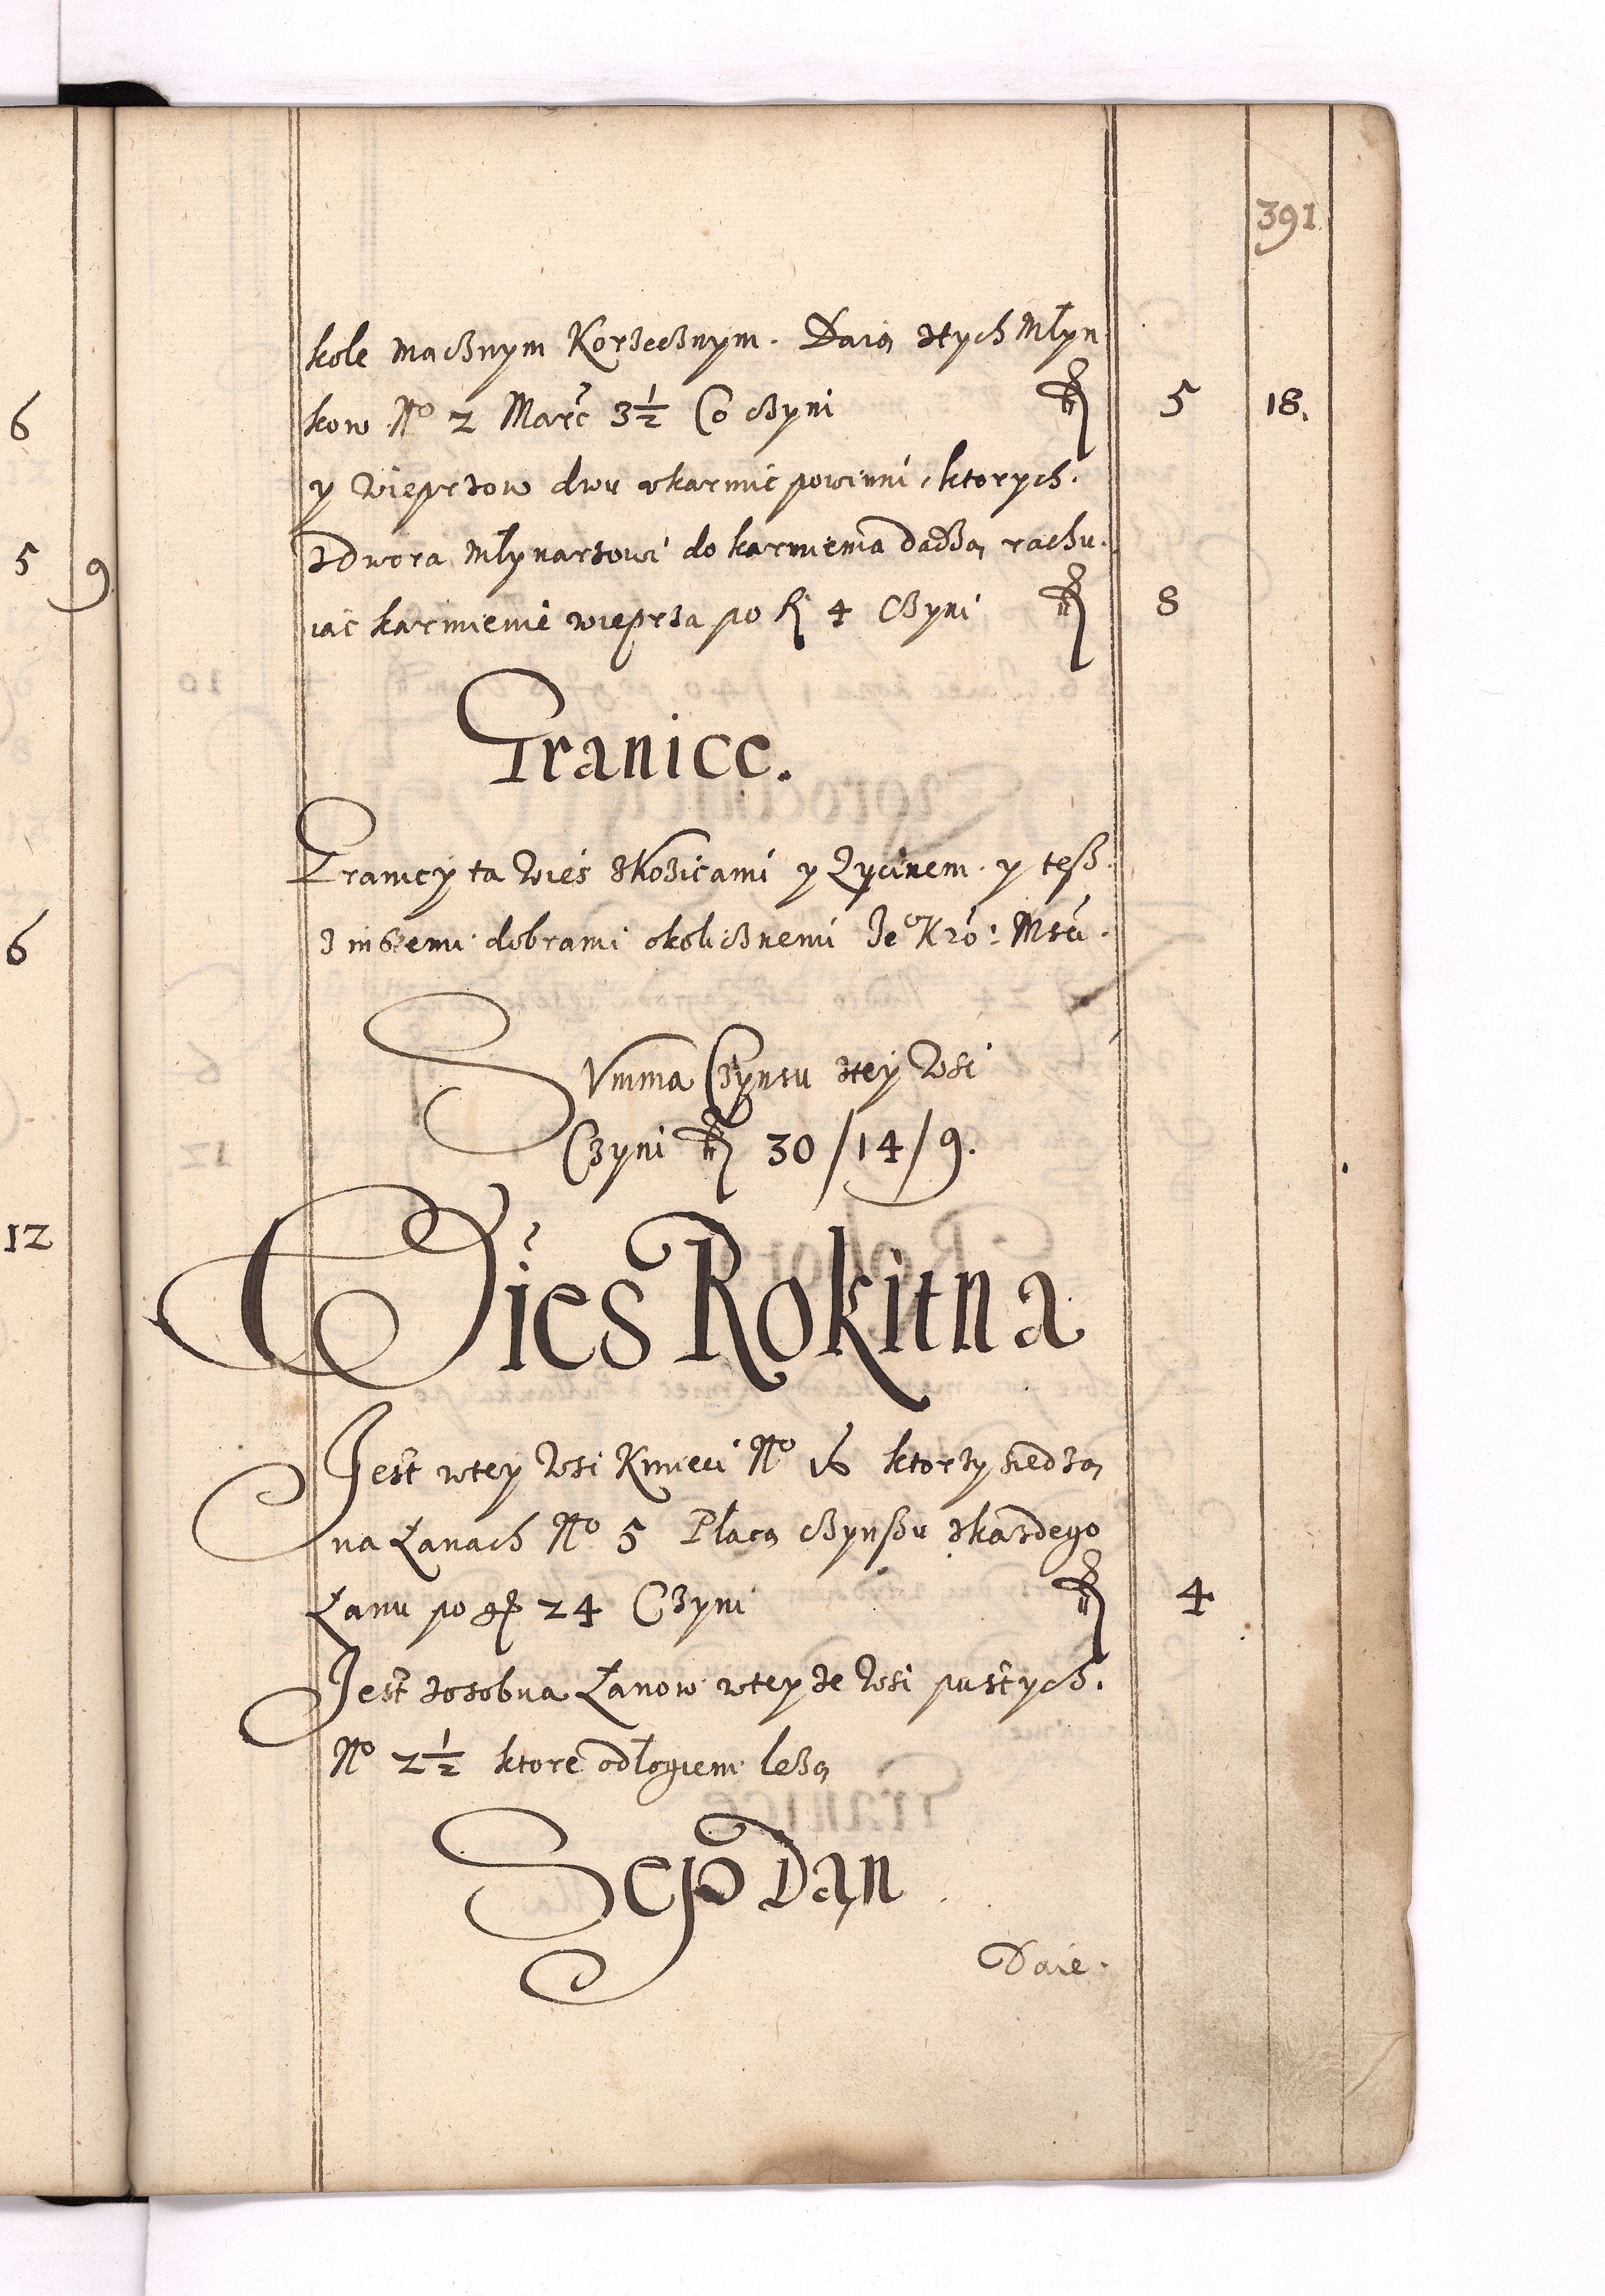 391
kole macznym Korzecznym. Daią ztych Młyn
kow No 2 Marć 3½ Co czyni fl 5 18.
y Wieprzow dwu vkarmić powinni, ktorych.
zdwora Młynarzowi do karmienia dadzą rachu.
iąc karmienie wieprza po fl 4 Czyni fl 8
Granice.
Graniczy ta Wieś zKozicami y Życinem. y tesz.
z inszemi dobrami okolicznemi Je° Kró: Mści.
Summa Czynsu ztey Wsi
Czyni fl 30/14/9.
Wieś Rokitna
Jest wtey Wsi Kmieci No 16 ktorzy siedzą
na Łanach No 5 Płacą czynszu zkazdego
Łanu po gr 24 Czyni fl 4
Jest zosobna Łanow wteyze Wsi pustych.
No 2½ ktore odłogiem leżą
Sep Dąn
Daie.
6
5 9
6
12